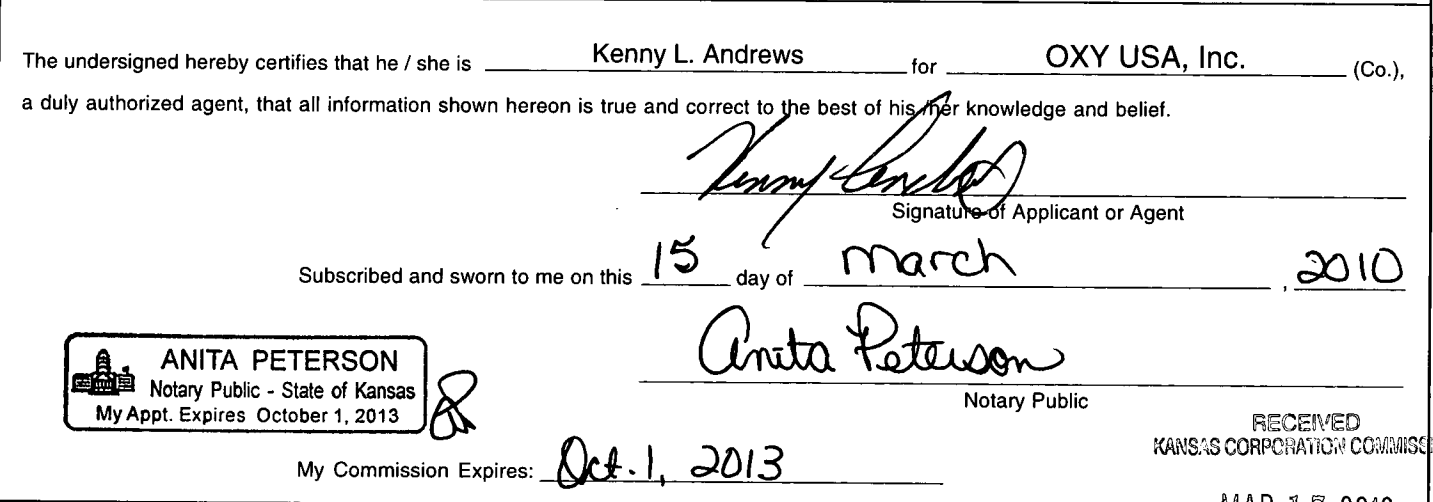 The undersigned hereby certifies that he / she is Kenny L. Andrews for OXY USA, Inc. (Co.),
a duly authorized agent, that all information shown hereon is true and correct to the best of his/her knowledge and belief.
Kenny Andrews
Signature of Applicant or Agent
Subscribed and sworn to me on this 15 day of March , 2010
Anita Peterson
Notary Public
ANITA PETERSON
Notary Public - State of Kansas
My Appt. Expires October 1, 2013
My Commission Expires: Oct. 1, 2013
RECEIVED
KANSAS CORPORATION COMMISS